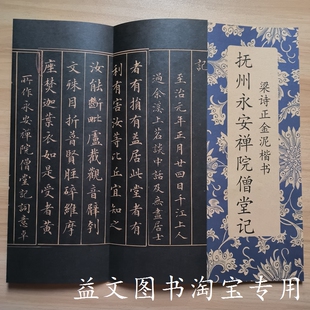 梁诗正金泥楷书
抚州永安禅院僧堂记
記
至治元年正月廿四日千江上人
過余溪上茗談中話及無盡居士
者有損有益居此堂者有
利有害汝等比丘宜知之
汝能斷毗盧截觀音臂刳
文殊目折普賢脛碎維摩
座焚迦葉衣如是受者黃
所作永安禪院僧堂記詞意卓
益文图书淘宝专用